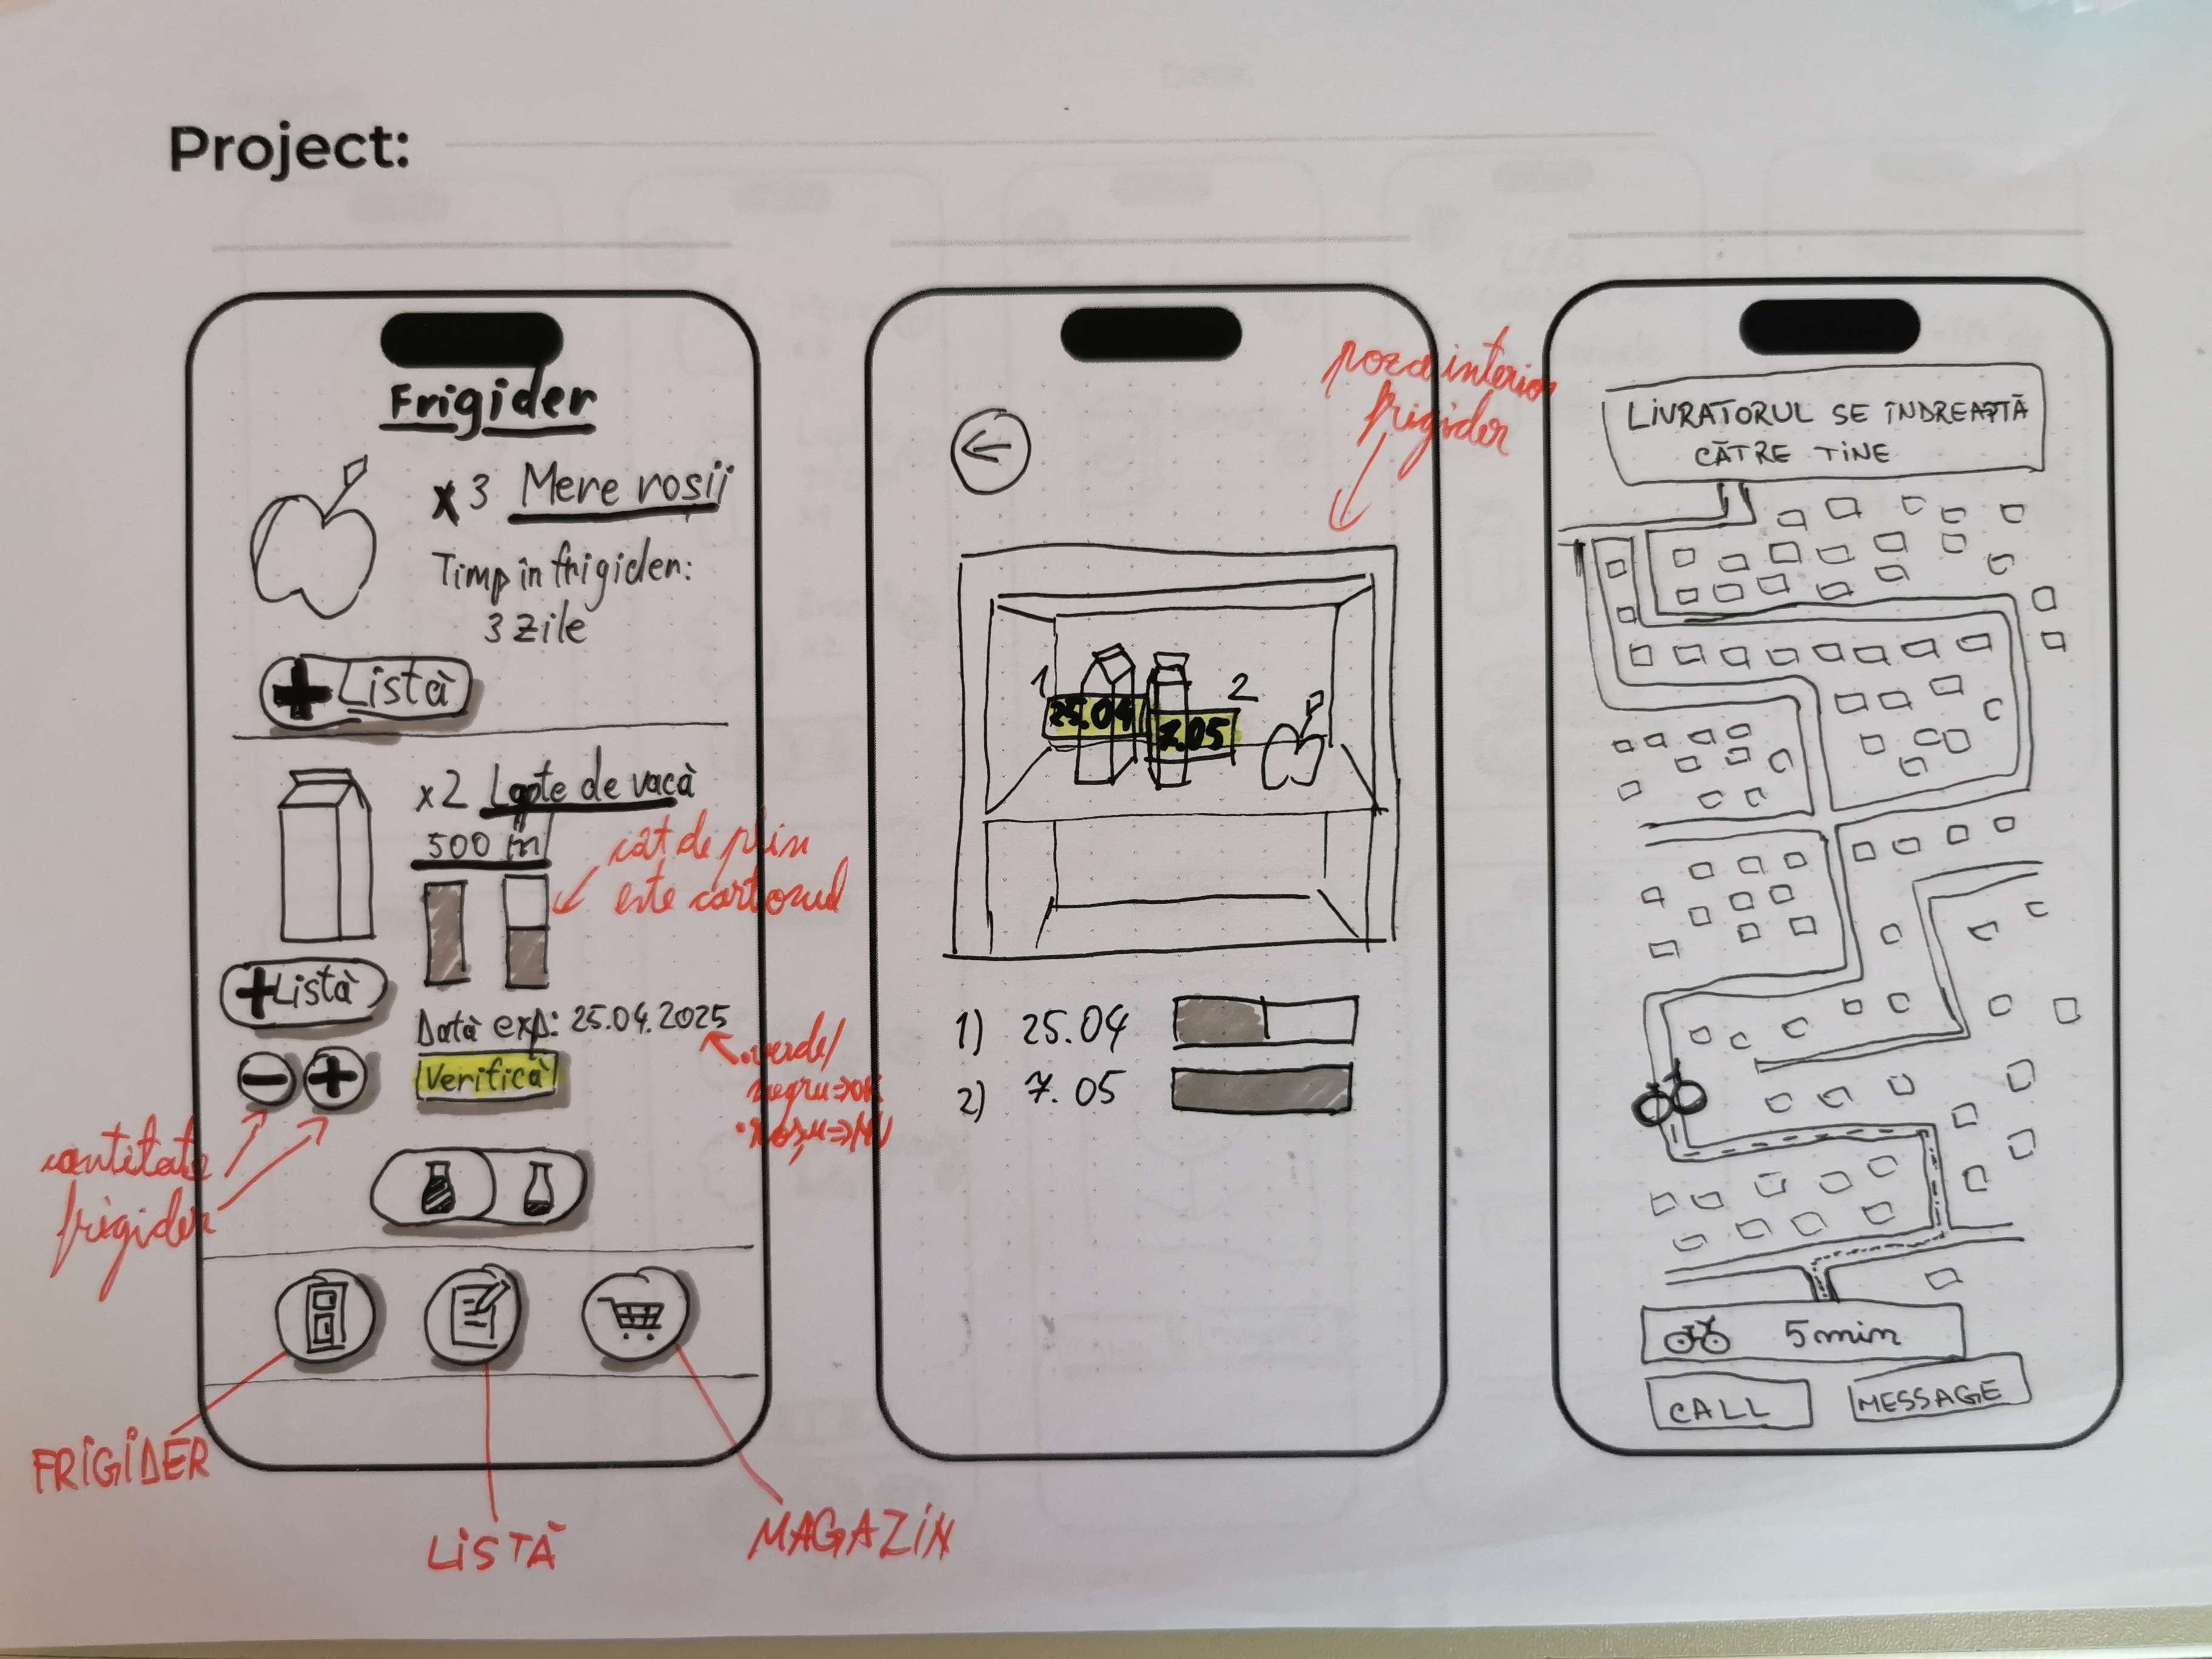 Project:
Frigider
x3 Mere roșii
Timp în frigider:
3 zile
+ Listă
x2 Lapte de vacă
500 ml
cât de plin
este cartonul
+ Listă
Dată exp: 25.04.2025
Verifică
• verde/
negru => OK
• roșu => NU
cantitate
frigider
FRIGIDER
LISTĂ
MAGAZIN
poza interior
frigider
1
25.04
2
7.05
1) 25.04
2) 7.05
LIVRATORUL SE ÎNDREAPTĂ
CĂTRE TINE
5 min
CALL
MESSAGE